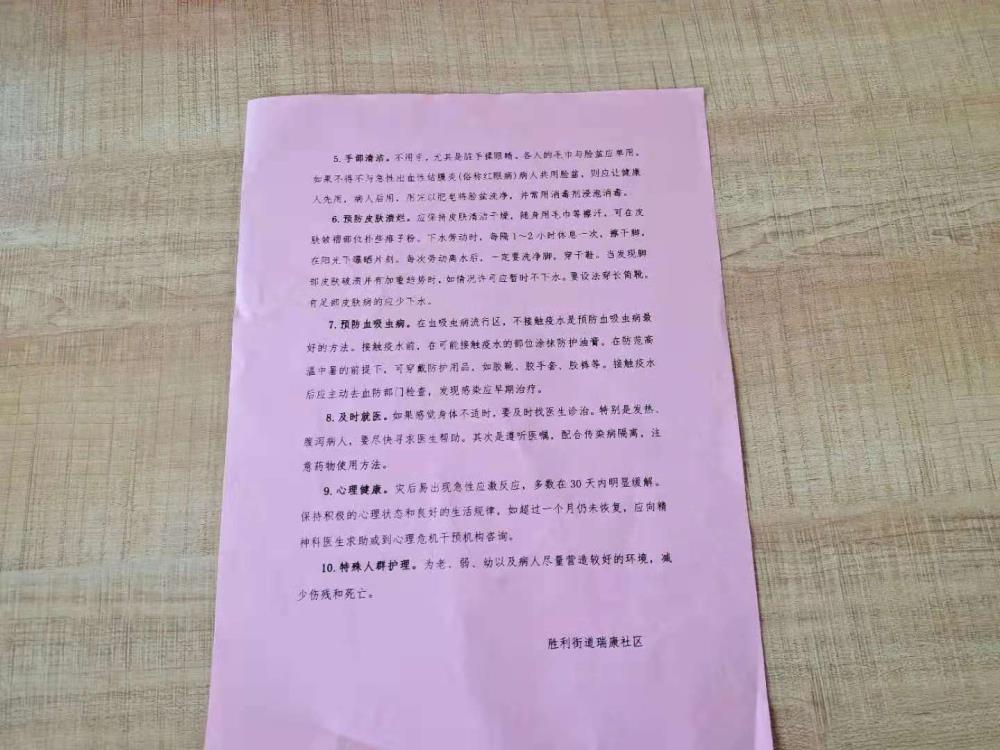 5. 手部清洁。不用手，尤其是脏手揉眼睛。各人的毛巾与脸盆应单用。
如果不得不与急性出血性结膜炎(俗称红眼病)病人共用脸盆，则应让健康
人先用，病人后用，用完以肥皂将脸盆洗净，并常用消毒剂浸泡消毒。
6. 预防皮肤溃烂。应保持皮肤清洁干燥，随身用毛巾等擦汗，可在皮
肤皱褶部位扑些痱子粉。下水劳动时，每隔1～2小时休息一次，擦干脚，
在阳光下曝晒片刻。每次劳动离水后，一定要洗净脚，穿干鞋。当发现脚
部皮肤破溃并有加重趋势时，如情况许可应暂时不下水。要设法穿长筒靴。
有足部皮肤病的应少下水。
7. 预防血吸虫病。在血吸虫病流行区，不接触疫水是预防血吸虫病最
好的方法。接触疫水前，在可能接触疫水的部位涂抹防护油膏。在防范高
温中暑的前提下，可穿戴防护用品，如胶靴、胶手套、胶裤等。接触疫水
后应主动去血防部门检查，发现感染应早期治疗。
8. 及时就医。如果感觉身体不适时，要及时找医生诊治。特别是发热、
腹泻病人，要尽快寻求医生帮助。其次是遵听医嘱，配合传染病隔离，注
意药物使用方法。
9. 心理健康。灾后易出现急性应激反应，多数在30天内明显缓解。
保持积极的心理状态和良好的生活规律，如超过一个月仍未恢复，应向精
神科医生求助或到心理危机干预机构咨询。
10. 特殊人群护理。为老、弱、幼以及病人尽量营造较好的环境，减
少伤残和死亡。
胜利街道瑞康社区